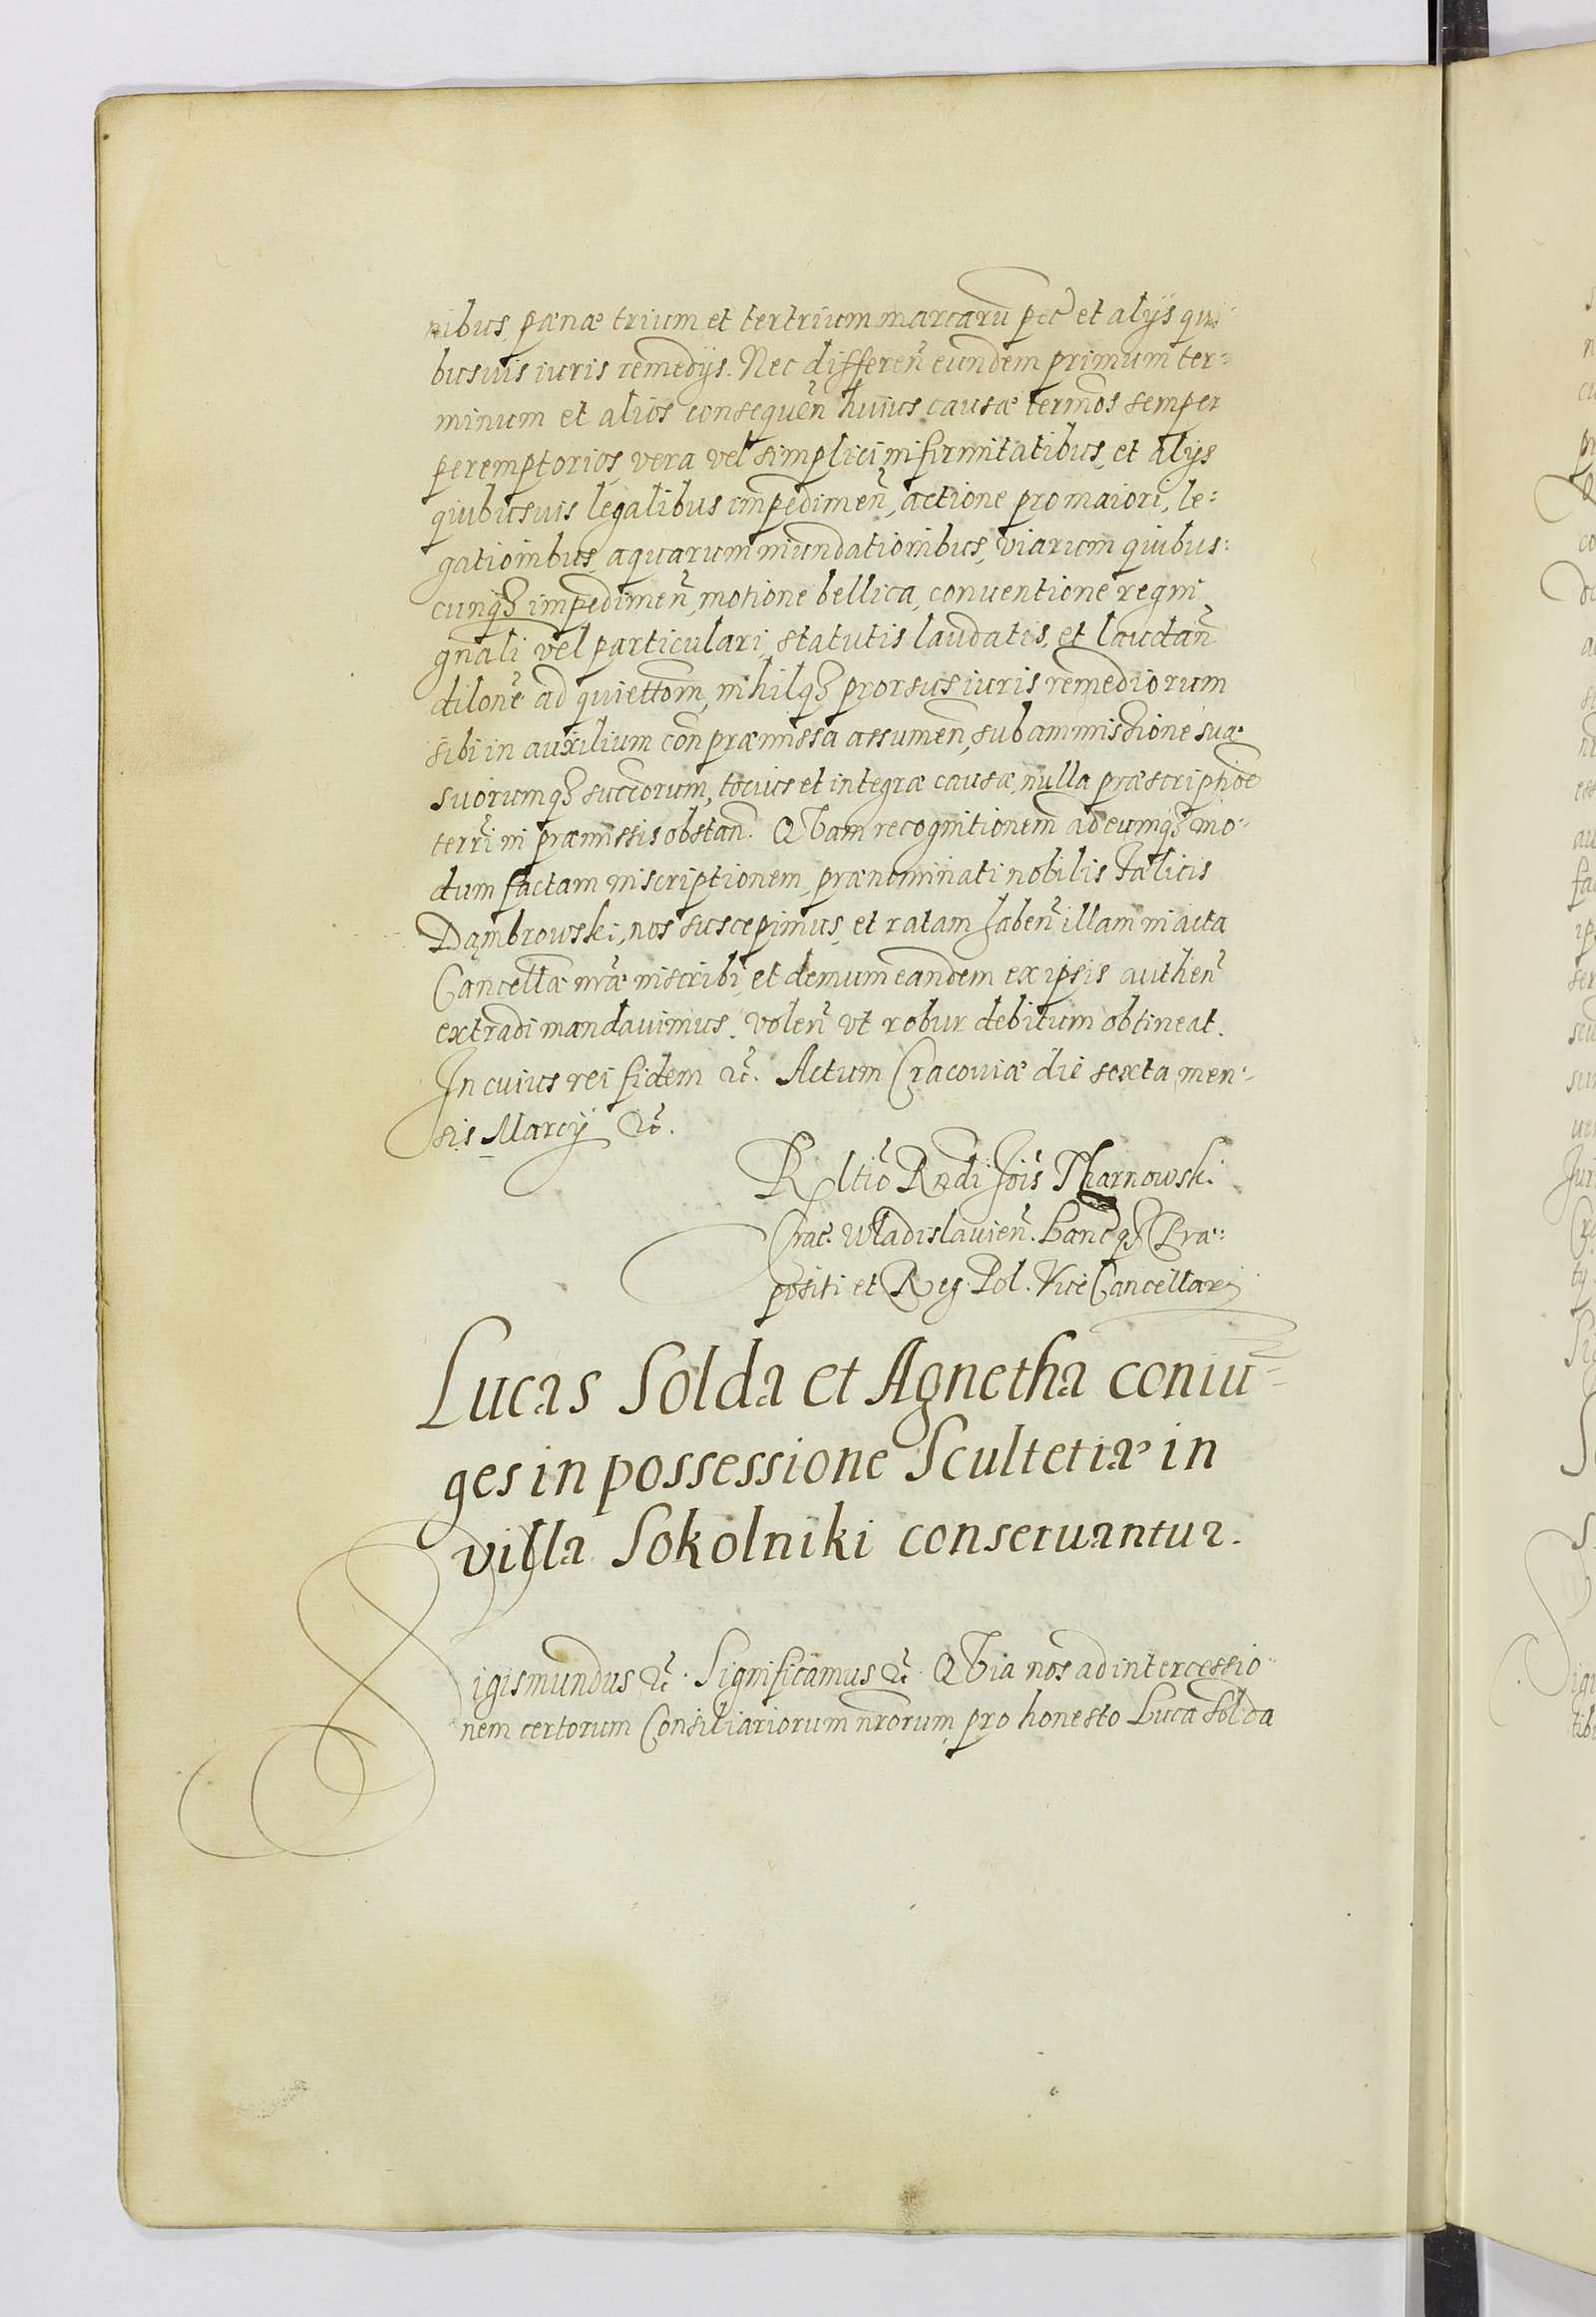 nibus, pænæ trium et tertrium marcarũ pec̃ et alijs qui-
busuis iuris remedijs. Nec differeñ eundem primum ter=
minum et alios consequeñ huius causæ term̃os semper
peremptorios, vera vel simplici infirmitatibus, et alijs
quibusuis legalibus impedimeñ, actione pro maiori, le=
gationibus, aquarum inundationibus, viarum quibus=
cunq3 impedimeñ, motione bellica, conuentione regni
gñali vel particulari, statutis laudatis, et laudañ
dilone ad quiettom̃, nihilq3 prorsus iuris remediorum
sibi in auxilium coñ præmissa assumeñ, sub ammissione suæ
suorumq3 succorum, totius et integræ causæ, nulla præscriptiõe
terrĩ in præmissis obstañ. QVam recognitionem ad eumq3 mo-
dum factam inscriptionem, prænominati nobilis Fælicis
Dąmbrowski, nos suscepimus, et ratam habeñ illam in acta
Cancellæ nr̃æ inscribi, et demum eandem ex ipsis autheñ
extradi mandauimus. voleñ vt robur debitum obtineat.
In cuius rei fidem &c̃. Actum Cracouiæ die sexta men-
sis Marcij &c̃.
Rltio Rndi Jõis Tharnowski
Crac̃. Wladislauieñ. Lanc̃ q3 Præ=
positi et Reg. Pol. Vice Cancellarij
Lucas Solda et Agnetha coniu=
ges in possessione Scultetiæ in
villa Sokolniki conseruantur.
Sigismundus &c̃. Significamus &c̃. QVia nos ad intercessio-
nem certorum Consiliariorum nr̃orum, pro honesto Luca Solda